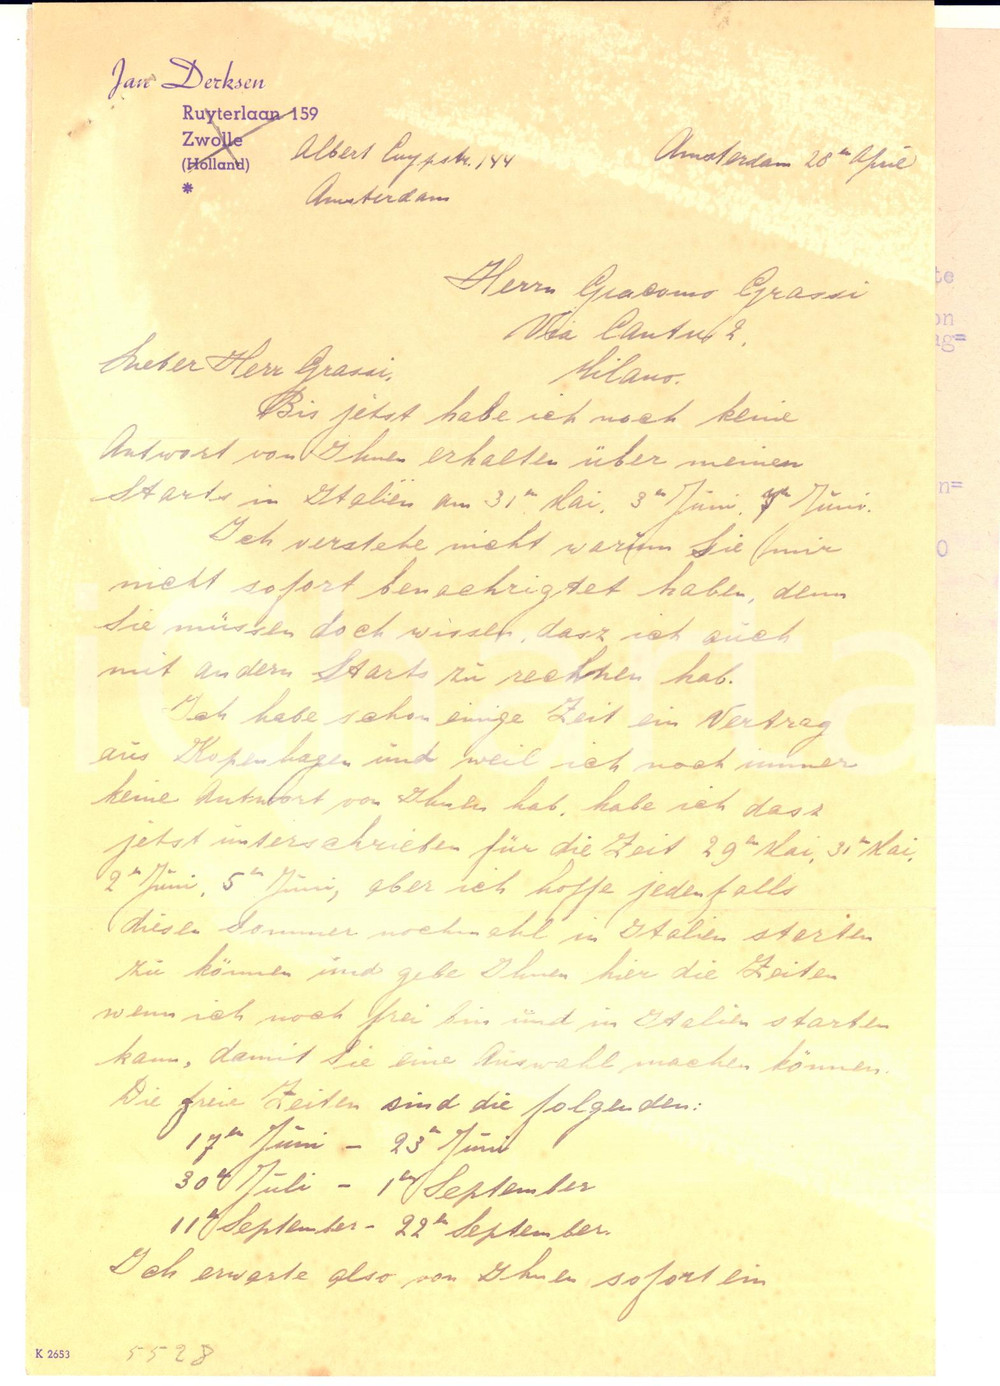 Jan Derksen
Ruyterlaan 159
Zwolle
(Holland)
*
Albert Cuypstr. 144
Amsterdam
Amsterdam 28en April
Herrn Giacomo Grassi
Via Cantu 2.
Milano.
Lieber Herr Grassi.
Bis jetst habe ich noch keine
Antwort von Ihnen erhalten über meinen
Starts in Italiën am 31en Mai, 3en Juni, 7en Juni.
Ich verstehe nicht warum Sie mir
nicht sofort benachrigtet haben, denn
Sie müssen doch wissen, dasz ich auch
mit andern Starts zu rechnen hab.
Ich habe schon einige Zeit ein Vertrag
aus Kopenhagen und weil ich noch immer
keine Antwort von Ihnen hab, habe ich dasz
jetst unterschrieben für die Zeit 29en Mai, 31en Mai,
2en Juni, 5en Juni, aber ich hoffe jedenfalls
diesen Sommer nochmahl in Italien starten
zu können und gebe Ihnen hier die Zeiten
wenn ich noch frei bin und in Italien starten
kann, damit Sie eine Auswahl machen können.
Die freie Zeiten sind die folgenden:
17en Juni - 23en Juni
30en Juli - 1en September
11en September - 22en September.
Ich erwarte also von Ihnen sofort ein
K 2653
5528
te
on
ag=
n=
0